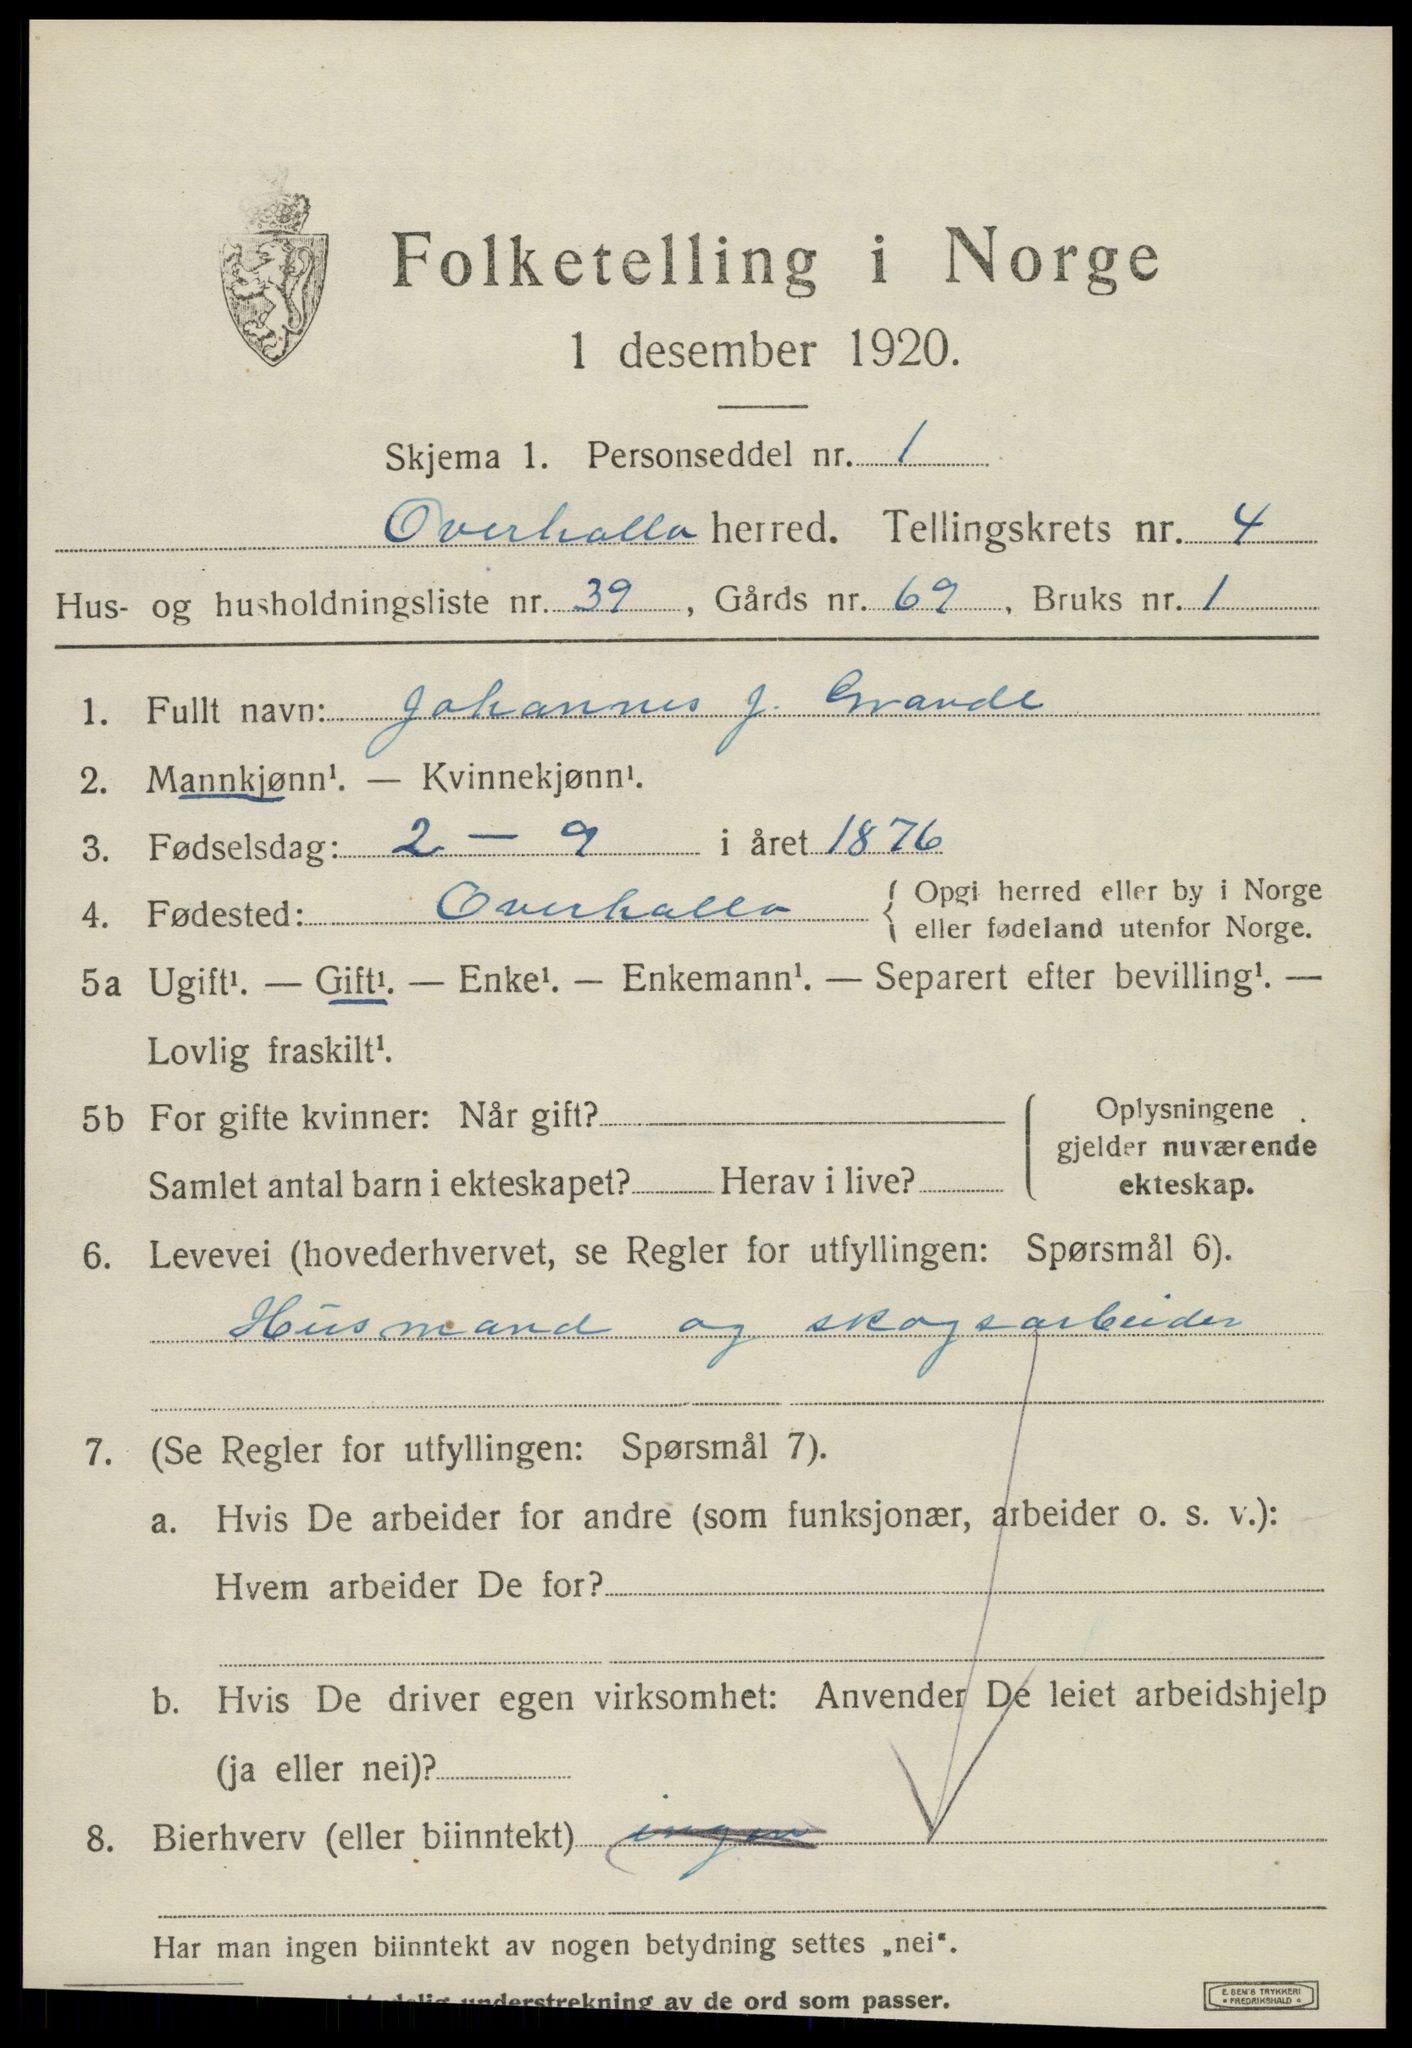 Folketelling i Norge
1 desember 1920.
Skjema 1. Personseddel nr. 1
Overhalla herred. Tellingskrets nr. 4
Hus- og husholdningsliste nr. 39, Gårds nr. 69, Bruks nr. 1
1. Fullt navn: Johannes J. Grande
2. Mannkjønn¹. — Kvinnekjønn¹.
3. Fødselsdag: 2 — 9 i året 1876
4. Fødested: Overhalla { Opgi herred eller by i Norge
eller fødeland utenfor Norge.
5a Ugift¹. — Gift¹. — Enke¹. — Enkemann¹. — Separert efter bevilling¹. —
Lovlig fraskilt¹.
5b For gifte kvinner: Når gift? { Oplysningene
gjelder nuværende
Samlet antal barn i ekteskapet? Herav i live? ekteskap.
6. Levevei (hovederhvervet, se Regler for utfyllingen: Spørsmål 6).
Husmand og skogsarbeider
7. (Se Regler for utfyllingen: Spørsmål 7).
a. Hvis De arbeider for andre (som funksjonær, arbeider o. s. v.):
Hvem arbeider De for?
b. Hvis De driver egen virksomhet: Anvender De leiet arbeidshjelp
(ja eller nei)?
8. Bierhverv (eller biinntekt) ingen
Har man ingen biinntekt av nogen betydning settes „nei“.
understrekning av de ord som passer.
E. SEM'S TRYKKERI
• FREDRIKSHALD •